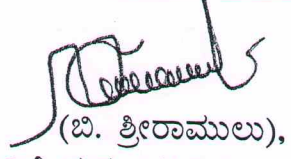 (ಬಿ. ಶ್ರೀರಾಮುಲು),